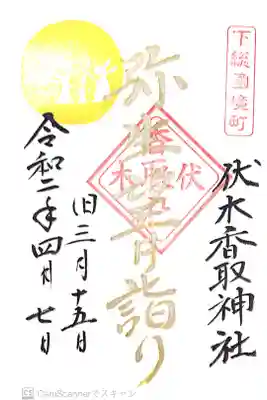 下総國境町
伏木香取神社
弥生月詣り
伏木香取
旧三月十五日
令和二年四月七日
CS CamScannerでスキャン